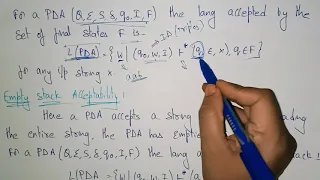 For a PDA (Q, Ɛ, S, δ, q₀, I, F) the lang accepted by the
Set of final states F is- ID (triples)
L(PDA) = { W | (q₀, W, I) ⊢* (q, Ɛ, x), q ∈ F}
for any i/p string x. aab
Empty stack Acceptability:
Here a PDA accepts a string
the entire string. The PDA has emptied
For a PDA (Q, Ɛ, S, δ, q₀, I, F) the lang
L(PDA = {W| (q₀,